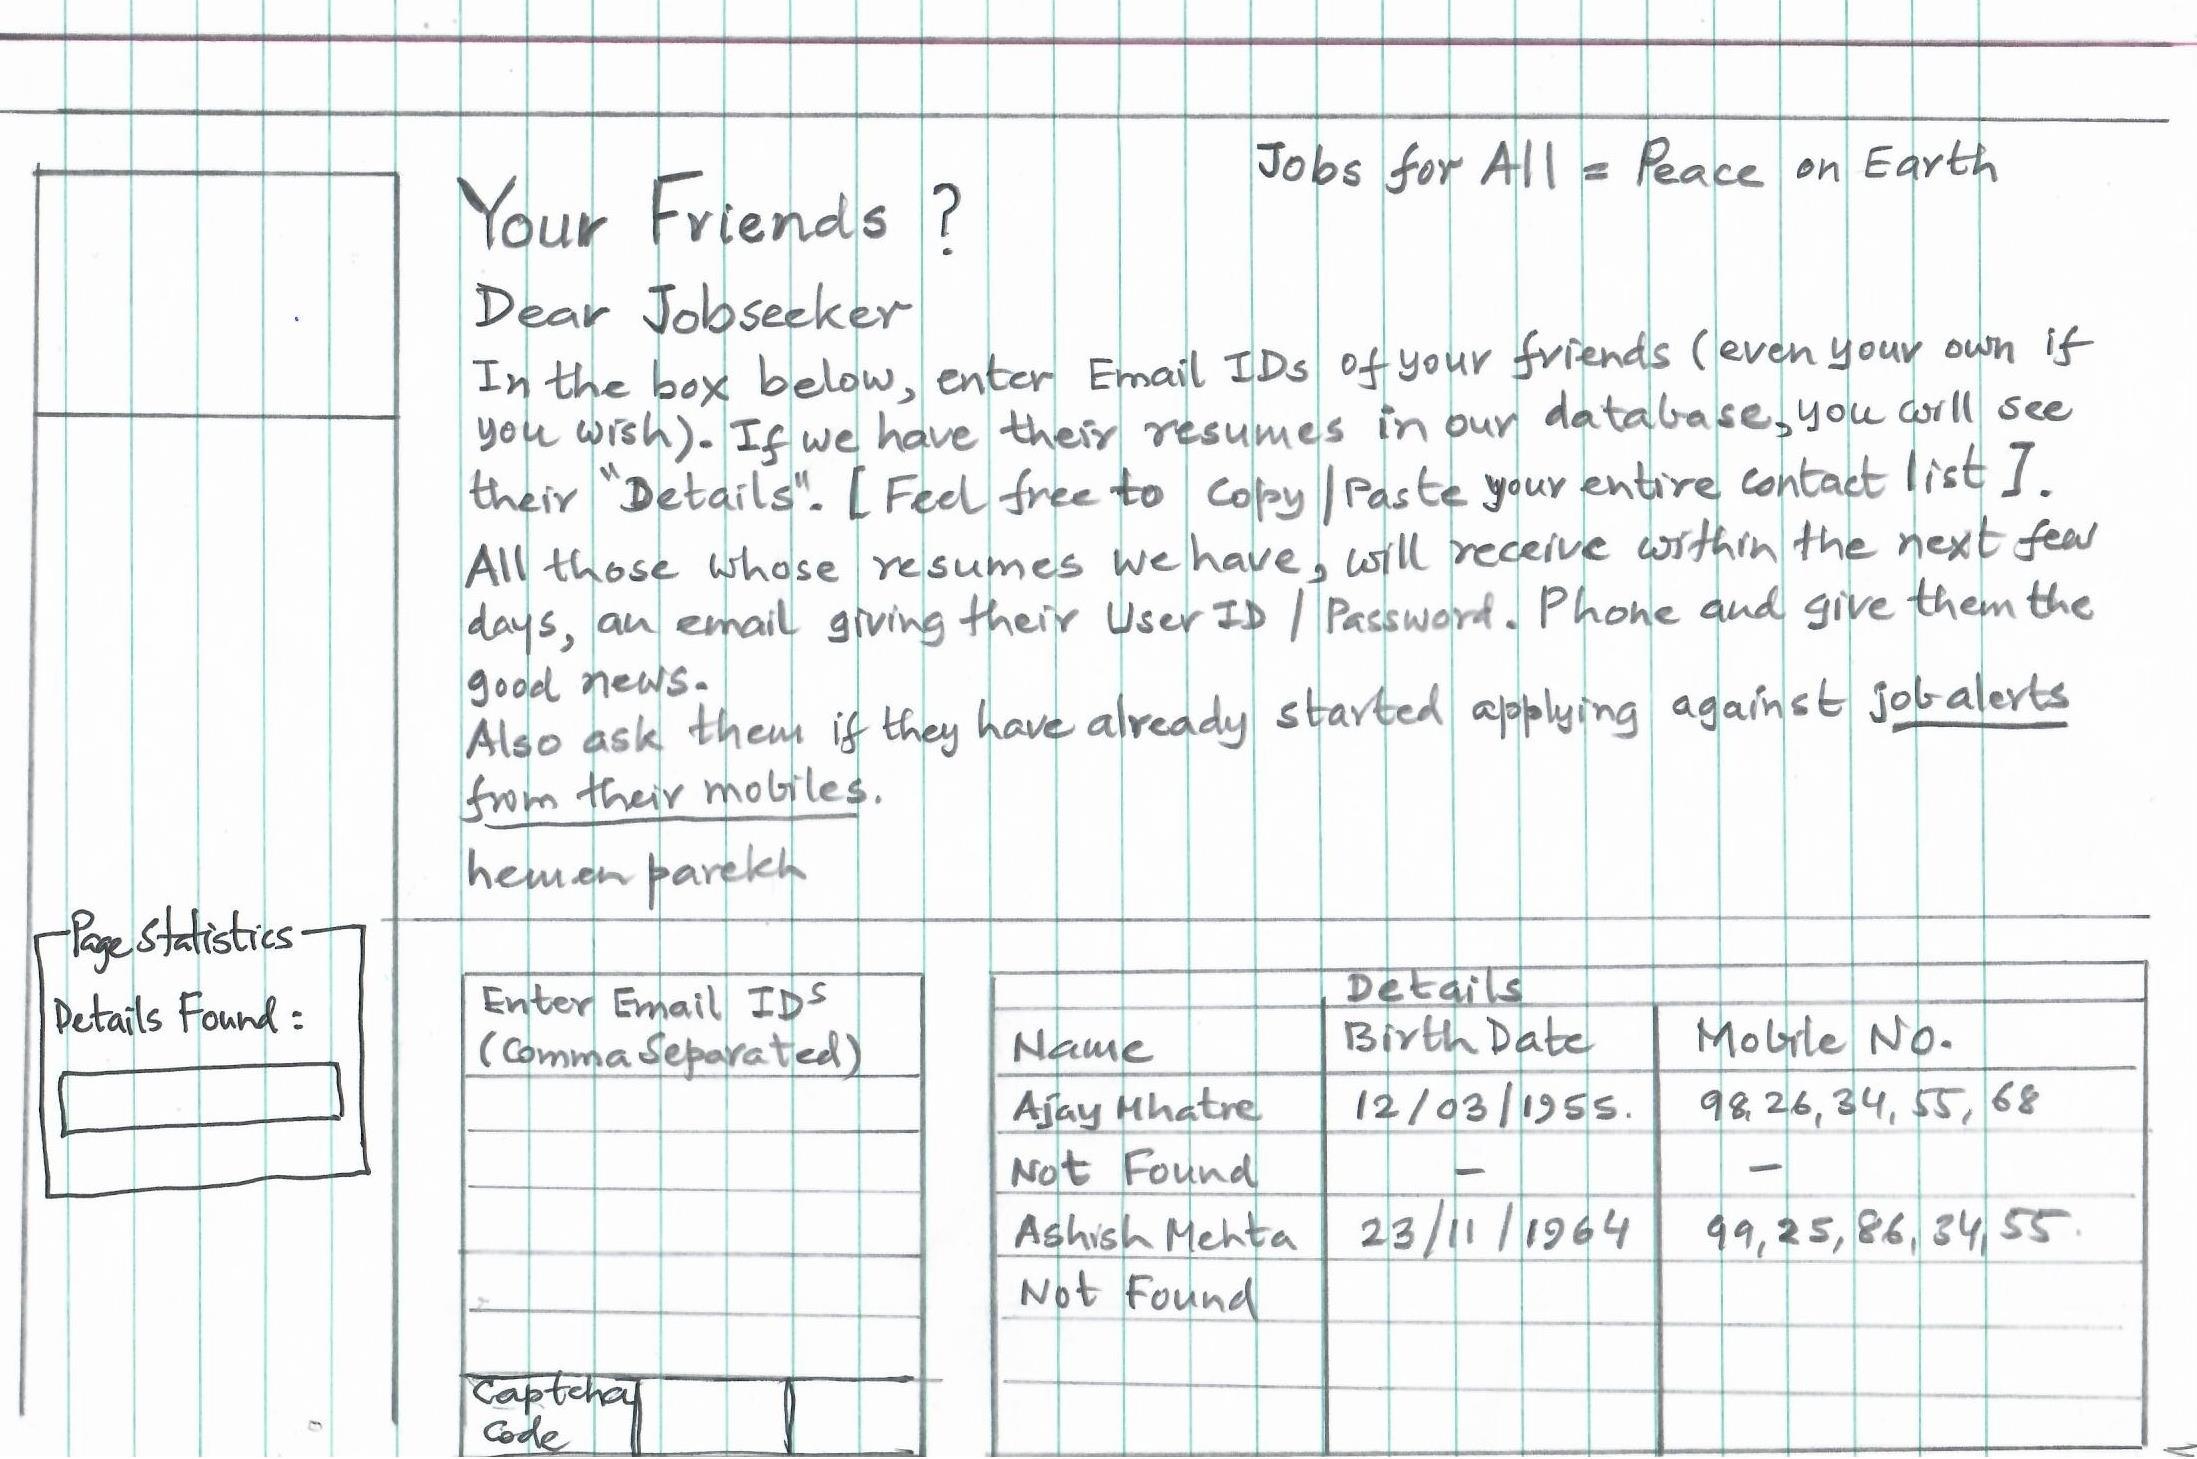 Jobs for All = Peace on Earth
Your Friends ?
Dear Jobseeker
In the box below, enter Email IDs of your friends (even your own if
you wish). If we have their resumes in our database, you will see
their "Details". [Feel free to Copy/Paste your entire contact list].
All those whose resumes we have, will receive within the next few
days, an email giving their User ID / Password. Phone and give them the
good news.
Also ask them if they have already started applying against job alerts
from their mobiles.
hemen parekh
Page Statistics
Details Found :
Enter Email IDs
(Comma Separated)
Captcha
Code
Details
Name Birth Date Mobile No.
Ajay Mhatre 12/03/1955. 98,26,34,55,68
Not Found - -
Ashish Mehta 23/11/1964 99,25,86,34,55.
Not Found